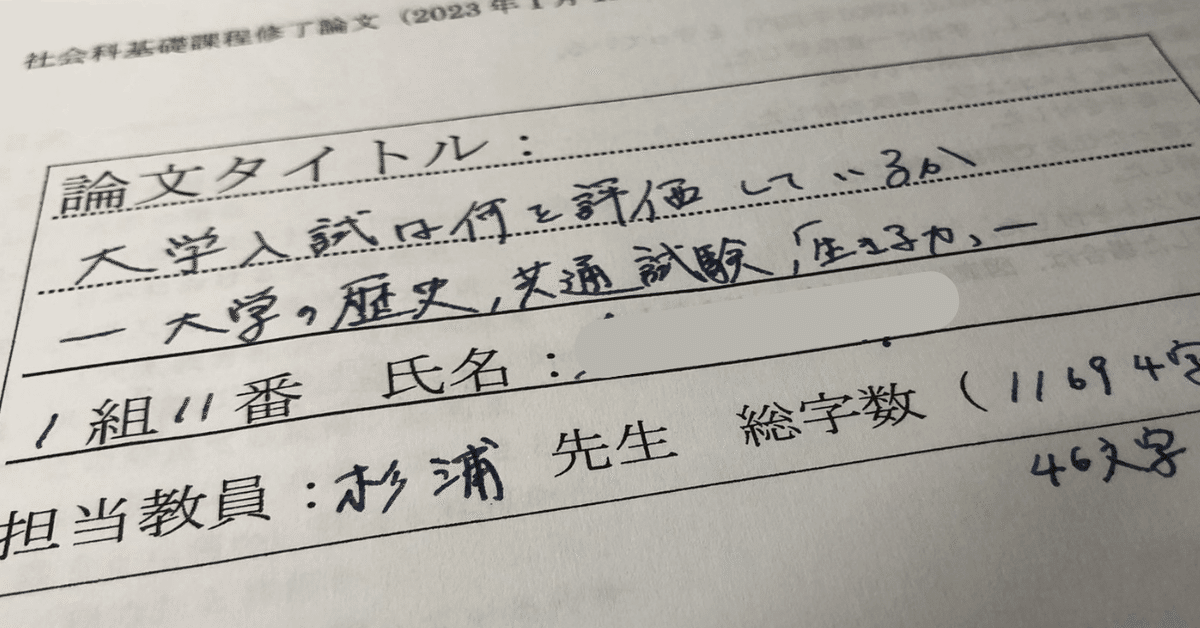 社会科基礎課程修了論文（2023年1月
論文タイトル：
大学入試は何を評価しているか
ー大学の歴史,共通試験,「生きる力」ー
1組11番 氏名：
担当教員：杉浦 先生 総字数（11694字
46文字